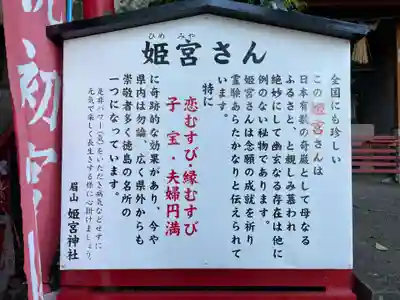 ひめ みや
姫宮さん
全国にも珍しい
この姫宮さんは
日本有数の奇巌として母なる
ふるさと、と親しみ慕われ
絶妙にして幽玄なる存在は他に
例のない秘物であります。
姫宮さんは念願の成就を祈り
霊験あらたかなりと伝えられて
います。
特に
恋むすび・縁むすび
子宝・夫婦円満
に奇跡的な効果があり、今や
県内は勿論、広く県外からも
崇敬者多く徳島の名所の
一つになっています。
是非パワー(気)をいただき病気などせずに
元気で楽しく長生きする様に心掛けましょう。
眉山 姫宮神社
初宮